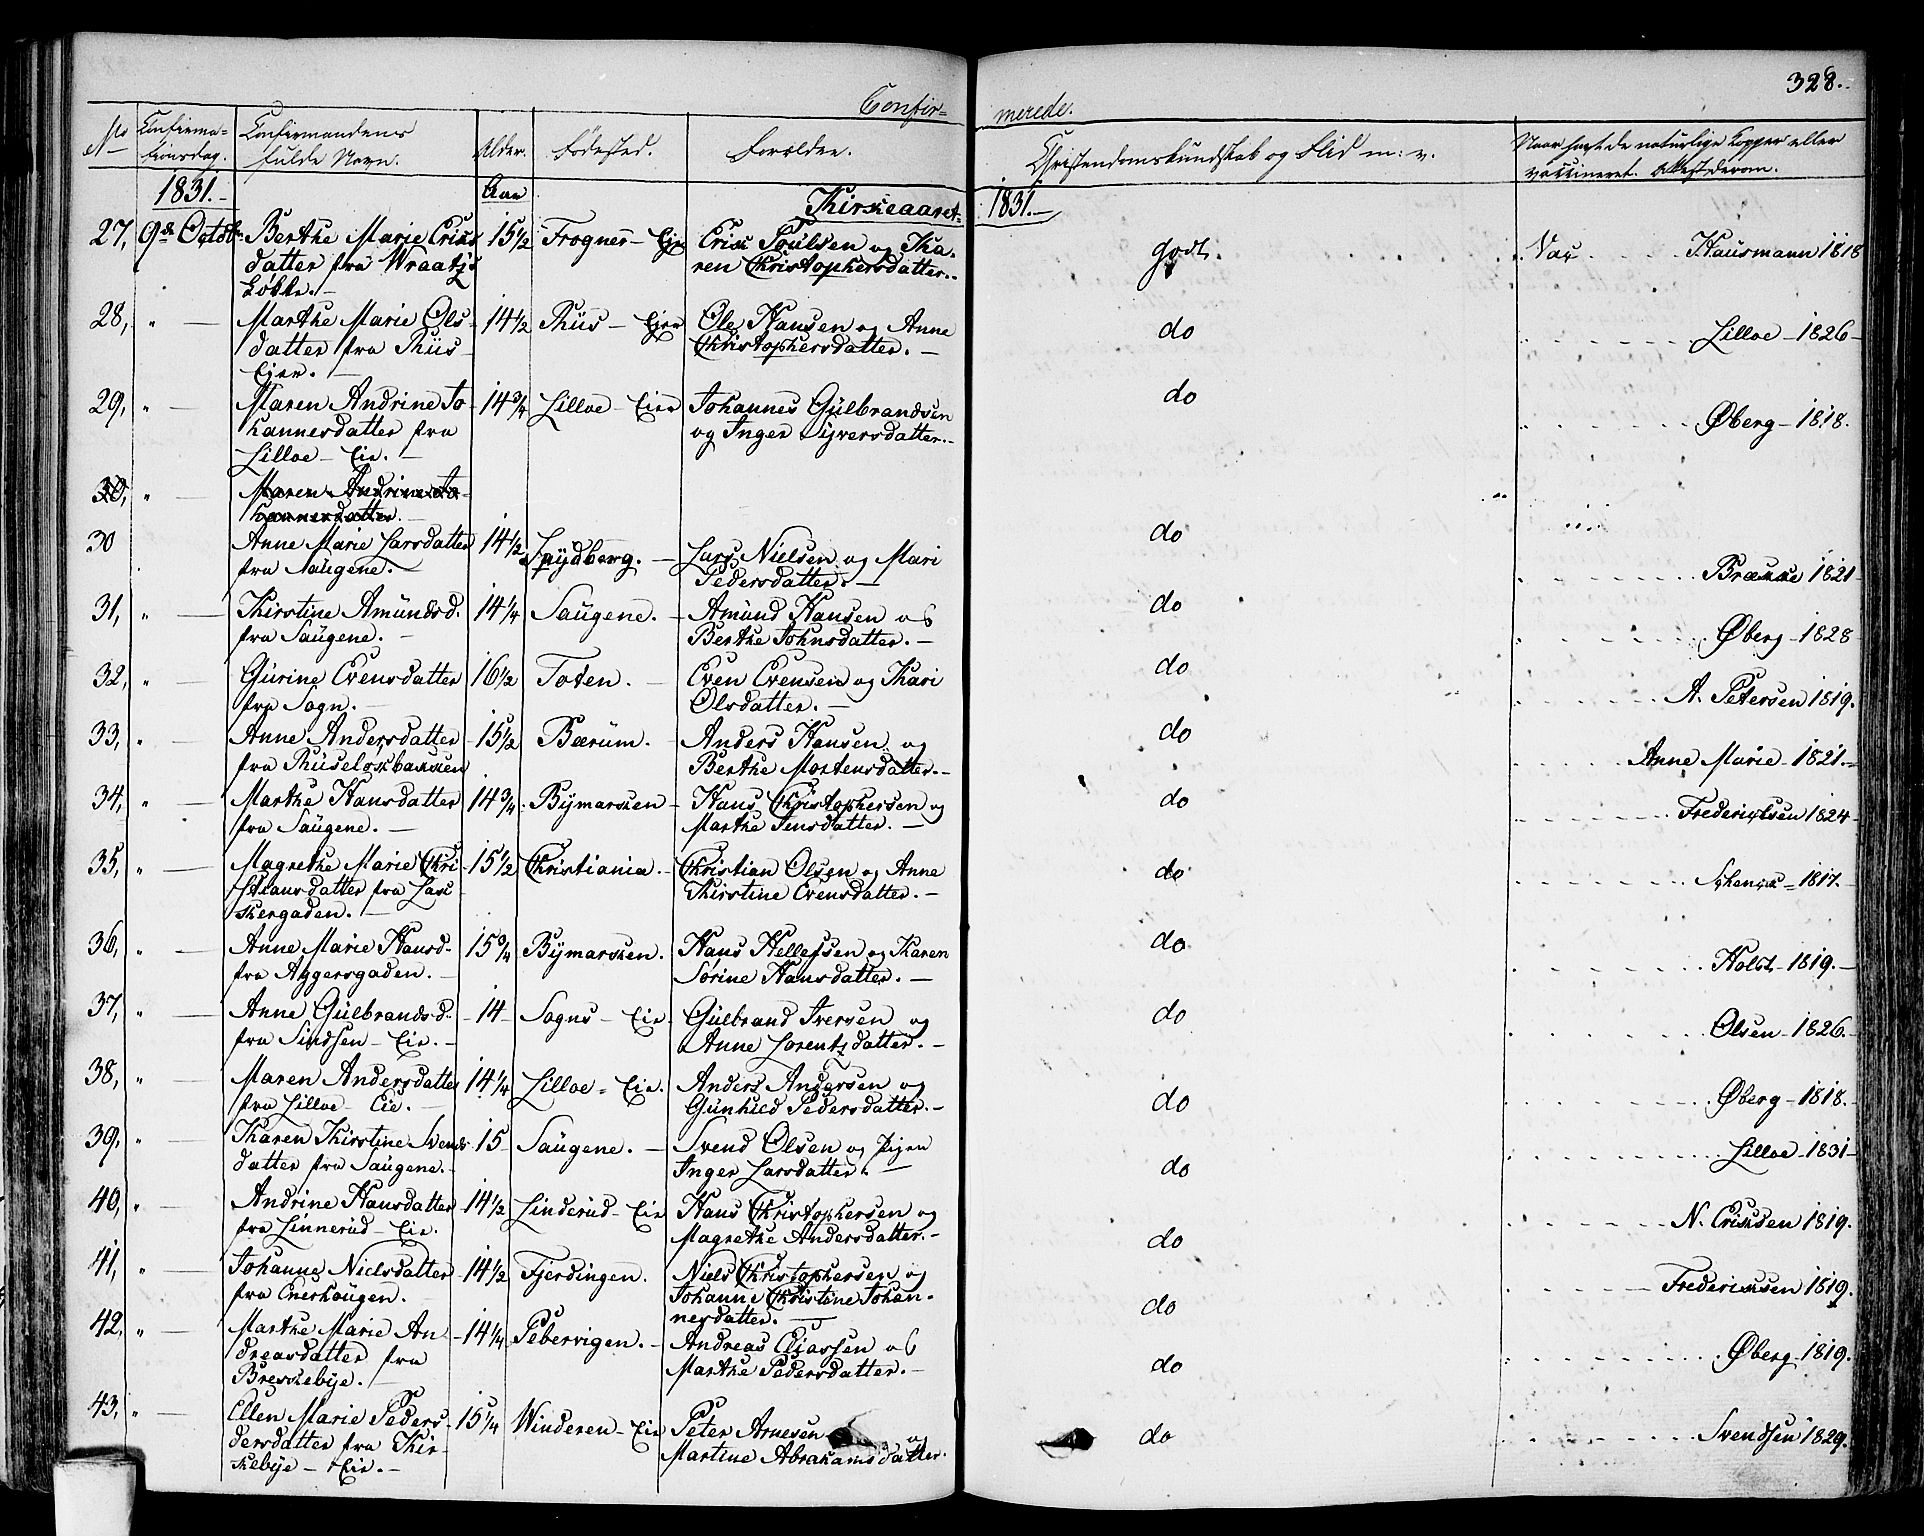 328.
Confir-
merede.
No
Confirma-
tionsdag.
Confirmandens
fulde Navn.
Alder.
Fødested.
Forældre.
Christendomskundskab og Flid m: v.
Naar havt de naturlige Kopper eller
vaccineret. Attest derom.
1831.-
Aar
Kirkeaaret
1831.-
27, 9de Octob. Berthe Marie Erics 15½ Frogner - Eje Erik Poulsen og Ka- godt. Vac J. Hausmann 1818
datter fra Wraatz ren Christophersdatter.
Løkke.-
28, " Marthe Marie Ols- 14½ Riis - Ejer Ole Hansen og Anne do Lilloe - 1826-
datter fra Riis- Christophersdatter.-
Ejer.-
29, " Maren Andrine Jo- 14¾ Lilloe - Eier Johannes Gulbrandsen do Øberg - 1818.
hannesdatter fra og Inger Syversdatter.-
Lilloe - Eie.-
30, " Maren Andrine Jo-
hannesdatter.-
30 Anne Marie Larsdatter 14½ Spydberg.- Lars Nielsen og Mari do Brække 1821
fra Saugene.- Pedersdatter.-
31, " Kirstine Amundsd. 14¼ Saugene.- Amund Hansen og do Øberg - 1828
fra Saugene.- Berthe Johnsdatter.-
32, " Gurine Evensdatter 16½ Toten.- Even Evensen og Kari do A. Petersen 1819.
fra Sogn.- Olsdatter.-
33, " Anne Andersdatter 15½ Bærum. Anders Hansen og do Anne Marie - 1821.-
fra Ruseløkbakken Berthe Mortensdatter.-
34, " Marthe Hansdatter 14¾ Bymarken - Hans Christophersen og do Fredericksen 1824-
fra Saugene.- Marthe Jensdatter.-
35, " Magrethe Marie Chri- 15½ Christiania.- Christian Olsen og Anne do Schenck - 1817.-
stiansdatter fra Lak- Kirstine Evensdatter.-
kergaden.-
36, " Anne Marie Hansd- 15¾ Bymarken. Hans Hellessen og Karen do Holst - 1819.-
fra Aggersgaden.- Sørine Hansdatter.-
37, " Anne Gulbrandsd. 14 Sogns - Eie Gulbrand Iversen og do Olsen - 1826.-
fra Sindsen - Eie.- Anne Lorentzdatter.-
38, " Maren Andersdatter 14¼ Lilloe - Eie. Anders Andersen og do Øberg - 1818.-
fra Lilloe - Eie.- Gunhild Pedersdatter.-
39, " Karen Kirstine Svends 15 Saugene.- Svend Olsen og Pigen do Lilloe - 1831-
datter fra Saugene.- Inger Larsdatter.-
40, " Andrine Hansdatter 14½ Linderud - Eie Hans Christophersen og do N. Ericksen 1819.
fra Linnerud - Eie. Magrethe Andersdatter.-
41, " Johanne Nielsdatter 14½ Fjerdingen. Niels Christophersen og do Fredericksen 1819.
fra Enerhaugen. Johanne Christine Johan-
nesdatter.-
42, " Marthe Marie An- 14¼ Pebervigen.- Andreas Eliassen og do Øberg - 1819.
dreasdatter fra Marthe Pedersdatter.-
Briskebye.-
43, " Ellen Marie Peders- 15¼ Winderen - Eie Peter Arnesen og do Svendsen 1829.
dersdatter fra Kir- Martine Abrahamsdatter.
kebye - Eie.-